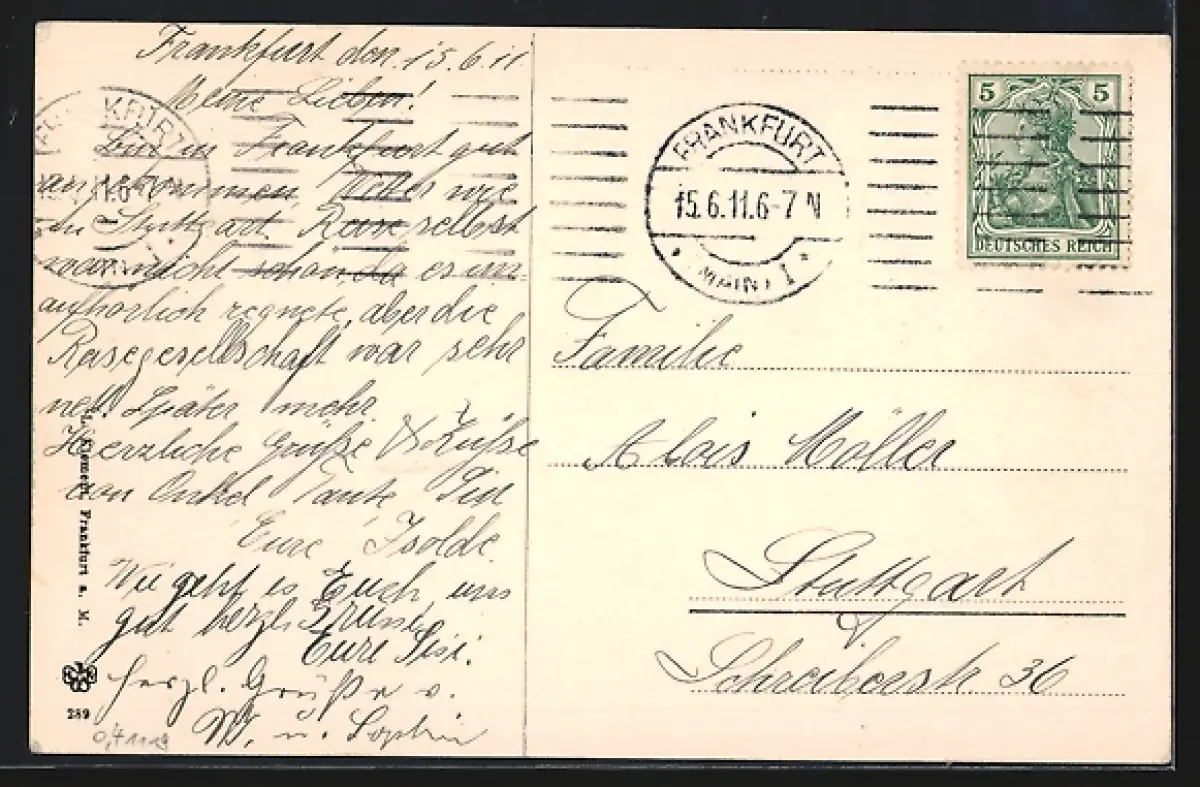 Frankfurt den 15.6.11
Meine Lieben!
Bin in Frankfurt gut
angekommen, Wetter wie
in Stuttgart. Reise selbst
war nicht schön, da es un-
aufhörlich regnete, aber die
Reisegesellschaft war sehr
nett. Später mehr.
Herzliche Grüße & Küsse
von Onkel Tante
Eure Isolde
Wie geht es Euch, uns
gut herzl. Grüsse
Eure Sisi.
Herzl. Grüße v.
W. u. Sophie
L. Klement, Frankfurt a. M.
289
FRANKFURT
15.6.11.6-7 N
(MAIN) 1
5 5
DEUTSCHES REICH
Familie
Alois Möller
Stuttgart
Schreiberstr. 36
FRANKFURT
11.6-7